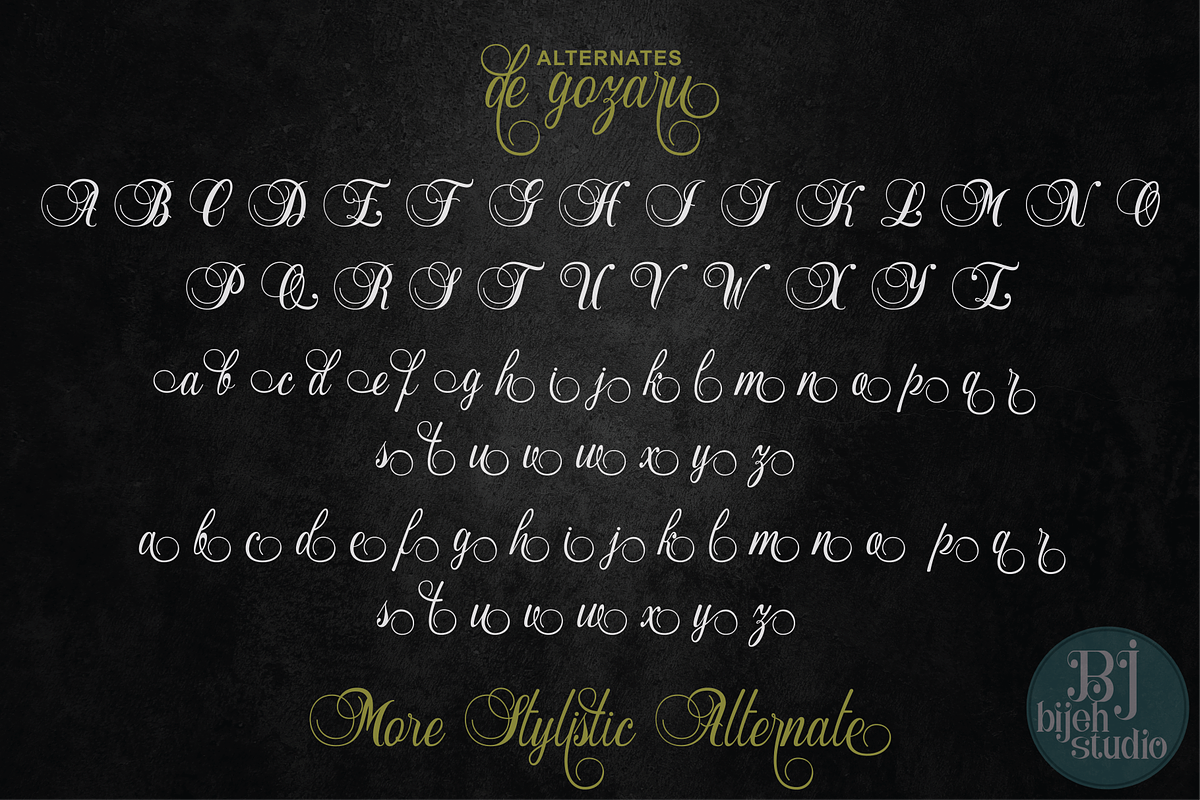 ALTERNATES
de gozaru
A B C D E F G H I J K L M N O
P Q R S T U V W X Y Z
a b c d e f g h i j k l m n o p q r
s t u v w x y z
a b c d e f g h i j k l m n o p q r
s t u v w x y z
More Stylistic Alternate
BJ
bijeh
studio